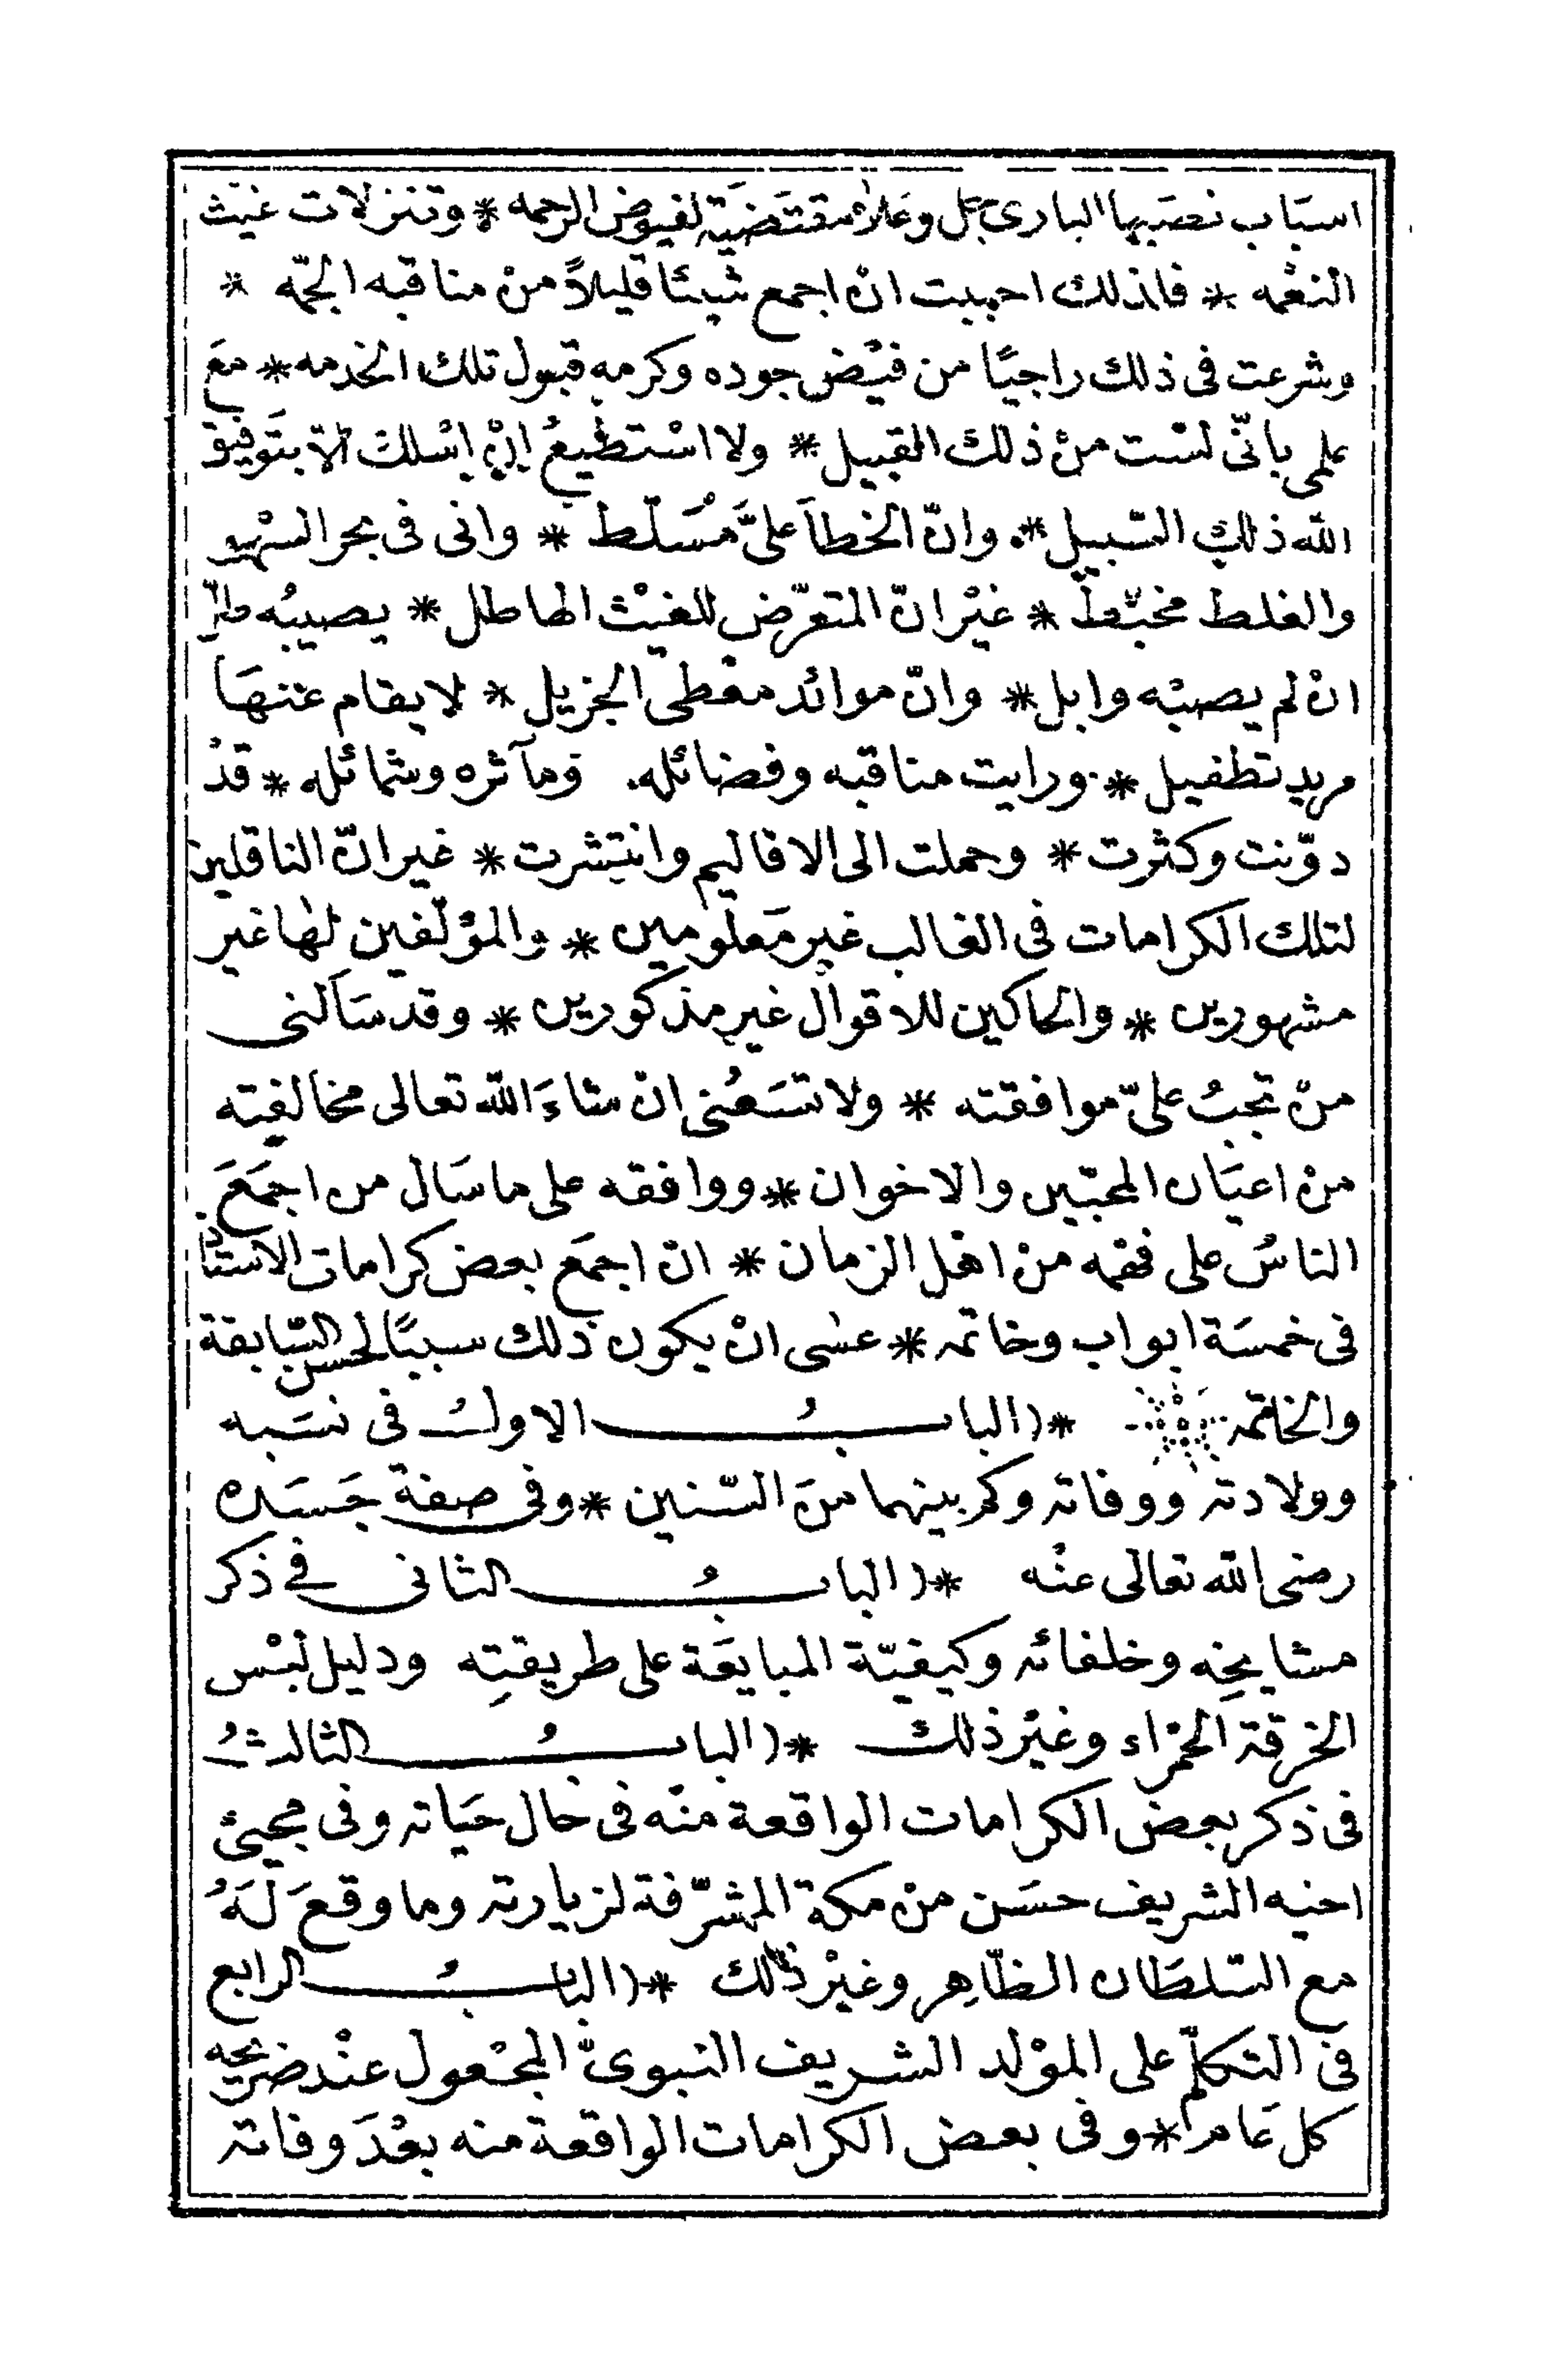 اسبَاب نصَبها البارى جل وعلا مقتضَية لفيوض الرحمه * وتنزلات غيث
النعْمه * فلذلك احببت انْ اجمع شيئا قليلاً منْ مناقبه الجمّه *
وشرعت فى ذلك راجيًا من فيْض جوده وكرمه قبول تلك الخدمه * معَ
علمى بانّى لسْت منْ ذلك القبيل * ولا اسْتطيعُ انْ اسْلك الّا بتَوفيق
الله ذلك السّبيل * وانّ الخطأَ علىَّ مُسَلّط * وانى فى بحر السهْو
والغلط مخبّط * غيْر انّ المتعرّض للغيْث الهاطل * يصيبُه طلّ
انْ لم يصبْه وابل * وانّ موائد معْطى الجزيل * لا يقام عنْهَا
مريد تطفيل * ورايت مناقبه وفضائله. ومآثره وشمائله * قدْ
دوّنت وكثرت * وحملت الى الاقاليم وانتشرت * غير انّ الناقلين
لتلك الكرامات فى الغالب غير مَعلومين * والمؤلّفين لها غير
مشهورين * والحاكين للاقوال غير مذكورين * وقد سَألنى
منْ تجبُ علىّ موافقته * ولا تسَعُنى انْ شاءَ الله تعالى مخالفته
منْ اعيَان المحبّين والاخوان * ووافقه على ما سَال من اجمَعَ
الناسُ على فهْمه منْ اهْل الزمان * ان اجمَع بعض كرامات الاستاذ
فى خمسَة ابواب وخاتمه * عسٰى انْ يكون ذلك سببًا لحسن السّابقة
والخاتمه *( البابُ الاولُ فى نسَبه
وولادته ووفاته وكم بينهما منَ السّنين * وفى صفة جَسَده
رضى الله تعالى عنْه *( البابُ الثانى فى ذكر
مشايخِه وخلفائه وكيفيّة المبايَعَة على طريقتِه ودليل لبْس
الخرقة الحمْراء وغيْر ذلك *( البابُ الثالثُ
فى ذكر بعض الكرامات الواقعة منْه فى حال حَياته وفى مجيئ
اخيه الشريف حسَن منْ مكة المشرّفة لزيارته وما وقعَ لَهُ
مع السّلطان الظّاهِر وغيْر ذلك *( البابُ الرابع
فى التكلّم على الموْلد الشريف النبوىّ المجْعول عنْد ضريحه
كل عَام * وفى بعض الكرامات الواقعة منه بعْدَ وفاته